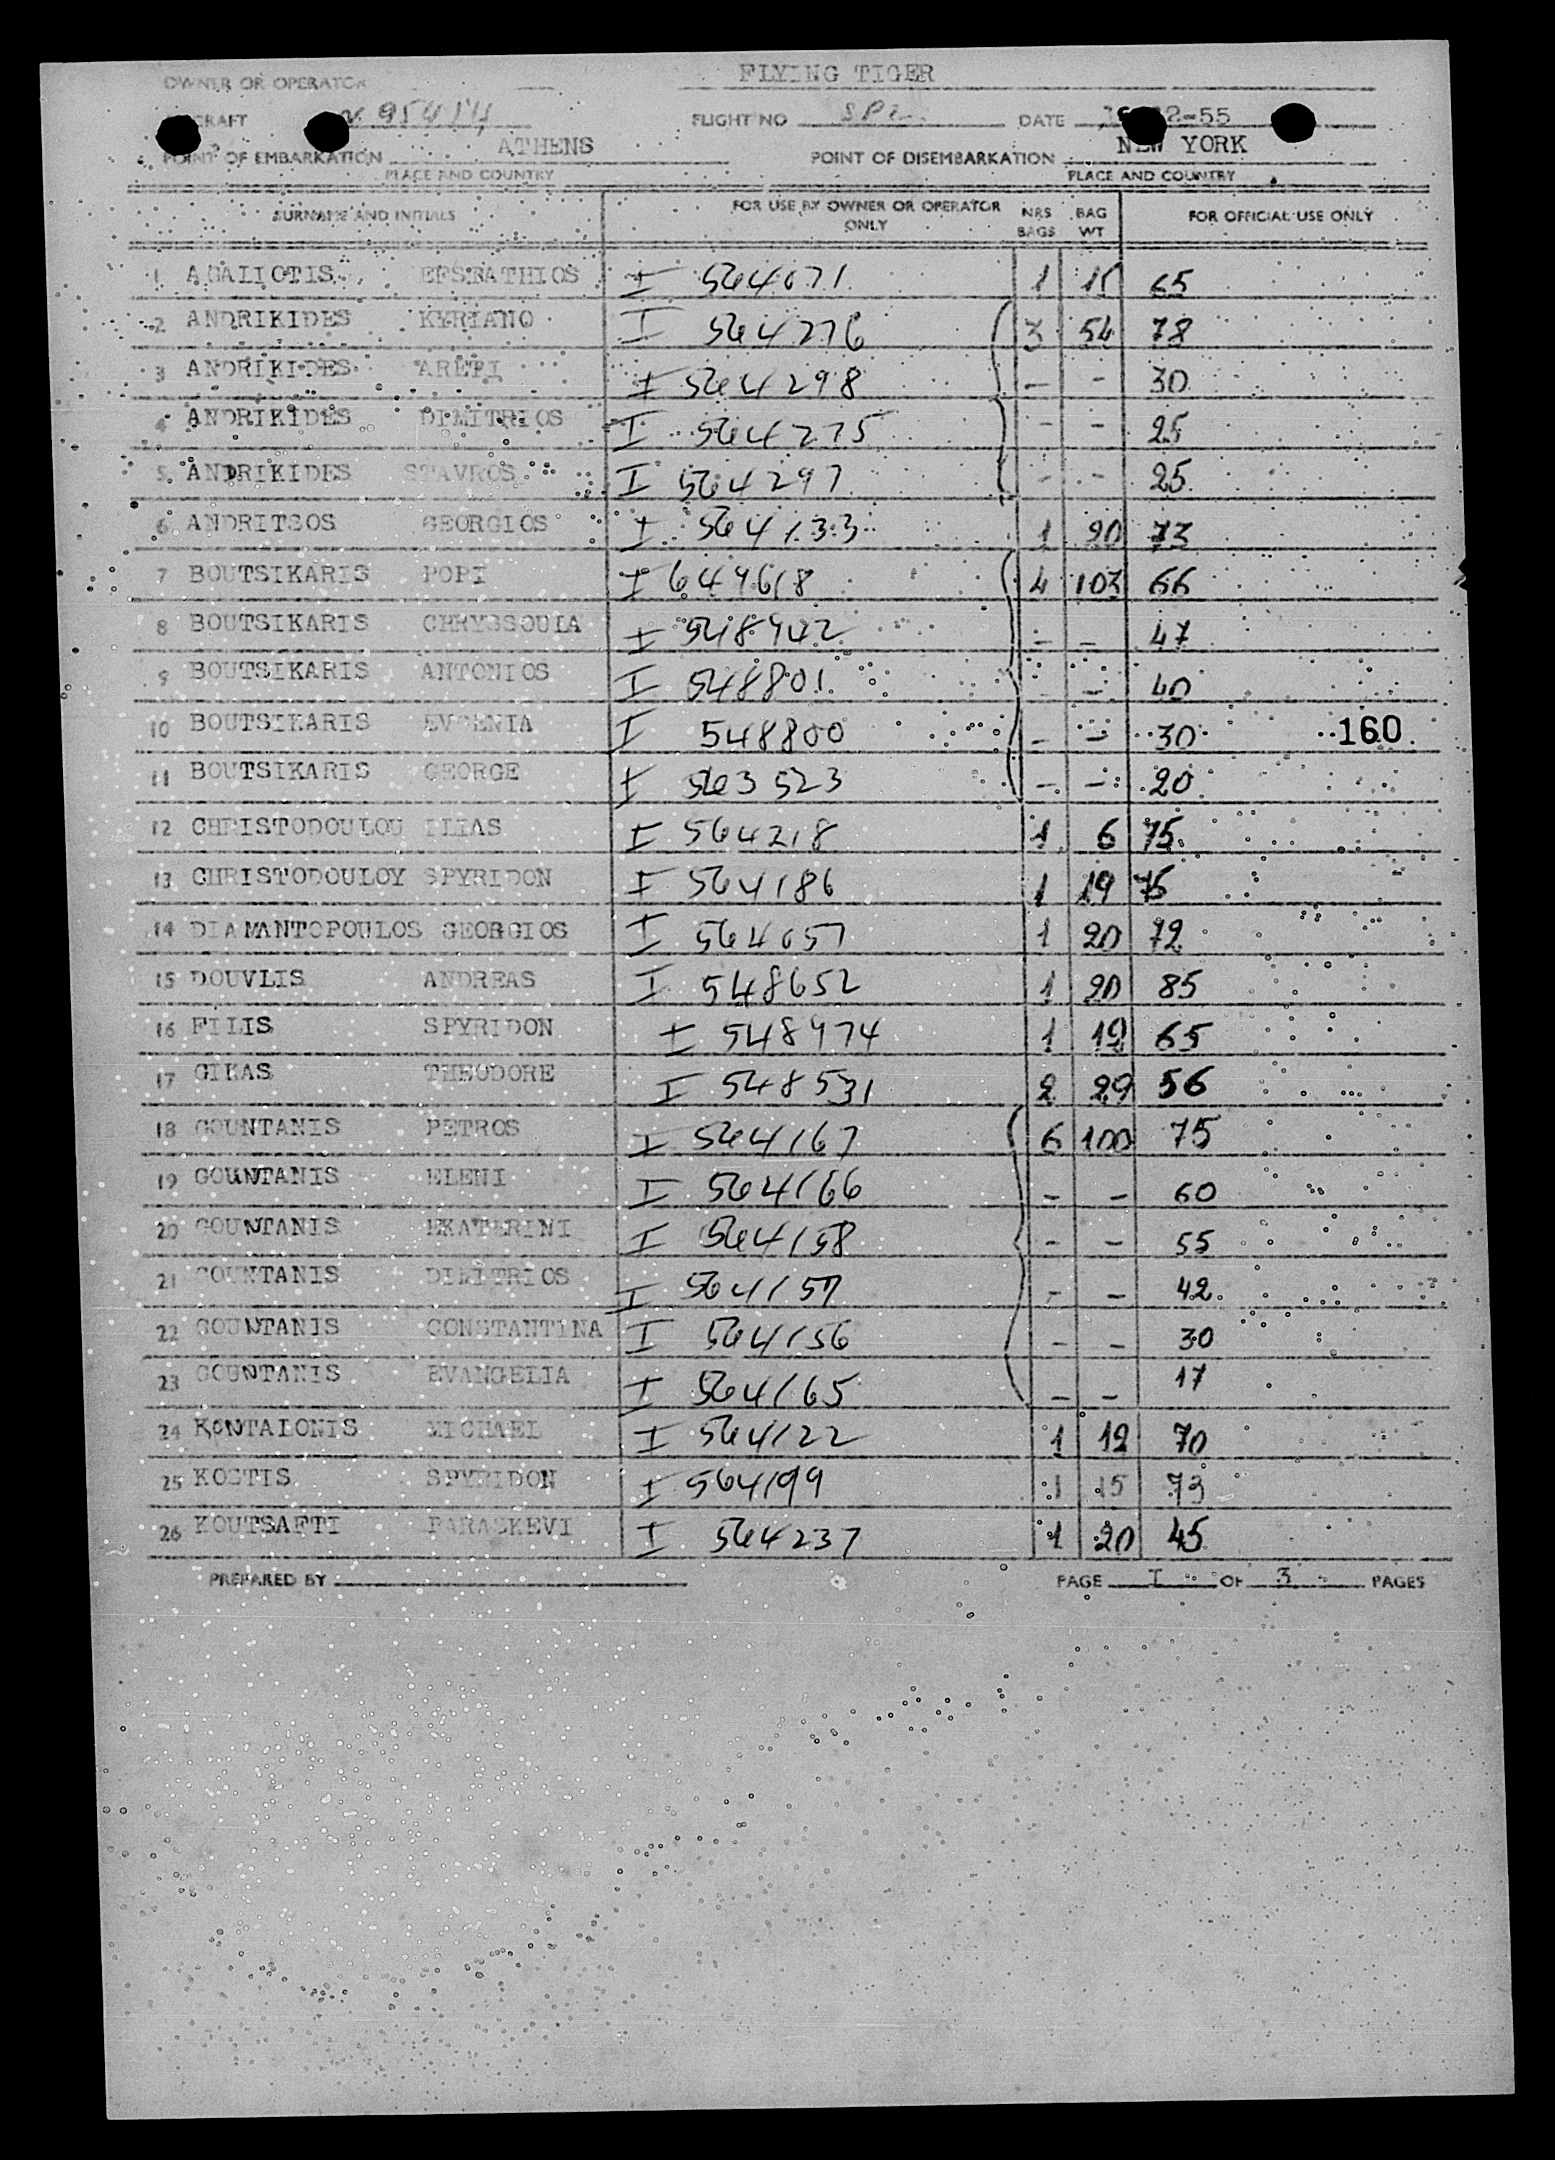 OWNER OR OPERATOR FLYING TIGER
N 95414 FLIGHT NO SP2 DATE 2-55
POINT OF EMBARKATION ATHENS POINT OF DISEMBARKATION NEW YORK
PLACE AND COUNTRY PLACE AND COUNTRY
SURNAME AND INITIALS FOR USE BY OWNER OR OPERATOR ONLY NRS BAGS BAG WT FOR OFFICIAL USE ONLY
1 AGALIOTIS EFSTATHIOS I 564071 1 65
2 ANDRIKIDES KYRIANO I 564276 3 54 78
3 ANDRIKIDES ARETI I 564298 - - 30
4 ANDRIKIDES DIMITRIOS I 564275 - - 25
5 ANDRIKIDES STAVROS I 564297 - - 25
6 ANDRITSOS GEORGIOS I 564133 1 20 73
7 BOUTSIKARIS POPI I 649618 4 103 66
8 BOUTSIKARIS CHRYSSOULA I 548942 - - 47
9 BOUTSIKARIS ANTONIOS I 548801 - - 40
10 BOUTSIKARIS EVGENIA I 548800 - - 30 160
11 BOUTSIKARIS GEORGE I 563523 - - 20
12 CHRISTODOULOU ILIAS I 564218 1 6 75
13 CHRISTODOULOY SPYRIDON I 564186 1 19 75
14 DIAMANTOPOULOS GEORGIOS I 564057 1 20 72
15 DOUVLIS ANDREAS I 548652 1 20 85
16 FILIS SPYRIDON I 548974 1 12 65
17 GIKAS THEODORE I 548531 2 29 56
18 GOUNTANIS PETROS I 564167 6 100 75
19 GOUNTANIS ELENI I 564166 - - 60
20 GOUNTANIS EKATERINI I 564158 - - 55
21 GOUNTANIS DIMITRIOS I 564157 - - 42
22 GOUNTANIS CONSTANTINA I 564156 - - 30
23 GOUNTANIS EVANGELIA I 564165 - - 17
24 KONTALONIS MICHAEL I 564122 1 12 70
25 KOSTIS SPYRIDON I 564199 1 15 73
26 KOUTSAFTI PARASKEVI I 564237 1 20 45
PREPARED BY PAGE I OF 3 PAGES